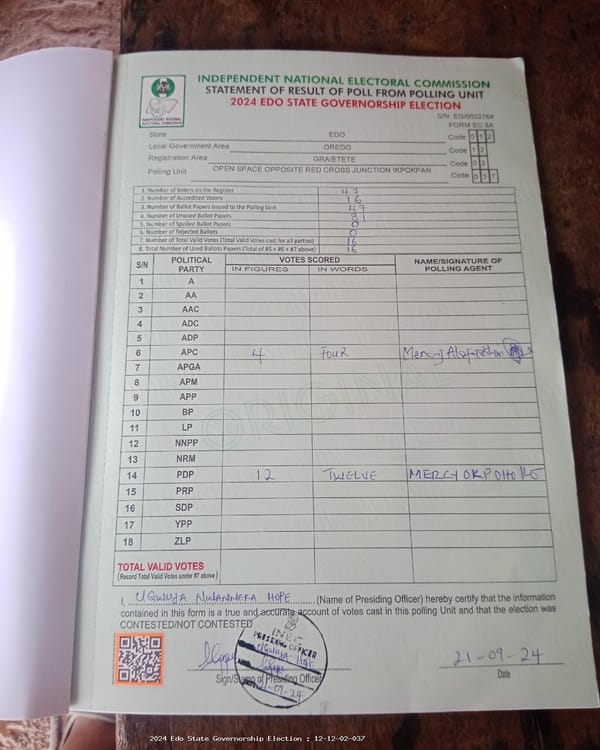 INDEPENDENT NATIONAL ELECTORAL COMMISSION
STATEMENT OF RESULT OF POLL FROM POLLING UNIT
2024 EDO STATE GOVERNORSHIP ELECTION
S/N: EG/0002764
FORM EC 8A
State EDO Code 0 1 2
Local Government Area OREDO Code 1 2
Registration Area GRA/ETETE Code 0 2
Polling Unit OPEN SPACE OPPOSITE RED CROSS JUNCTION IKPOKPAN Code 0 3 7
1. Number of Voters on the Register 47
2. Number of Accredited Voters 16
3. Number of Ballot Papers Issued to the Polling Unit 47
4. Number of Unused Ballot Papers 31
5. Number of Spoiled Ballot Papers 0
6. Number of Rejected Ballots 0
7. Number of Total Valid Votes (Total Valid Votes cast for all parties) 16
8. Total Number of Used Ballots Papers (Total of #5 + #6 + #7 above) 16
S/N POLITICAL PARTY VOTES SCORED NAME/SIGNATURE OF POLLING AGENT
IN FIGURES IN WORDS
1 A
2 AA
3 AAC
4 ADC
5 ADP
6 APC 4 FOUR Mercy
7 APGA
8 APM
9 APP
10 BP
11 LP
12 NNPP
13 NRM
14 PDP 12 TWELVE MERCY
15 PRP
16 SDP
17 YPP
18 ZLP
ORIGINAL
TOTAL VALID VOTES
(Record Total Valid Votes under #7 above)
I, UGWUJA NWANNEKA HOPE (Name of Presiding Officer) hereby certify that the information
contained in this form is a true and accurate account of votes cast in this polling Unit and that the election was
CONTESTED/NOT CONTESTED
INEC
PRESIDING OFFICER
UGWUJA HOPE
21-09-24
Sign/Stamp of Presiding Officer
21-09-24
Date
2024 Edo State Governorship Election : 12-12-02-037